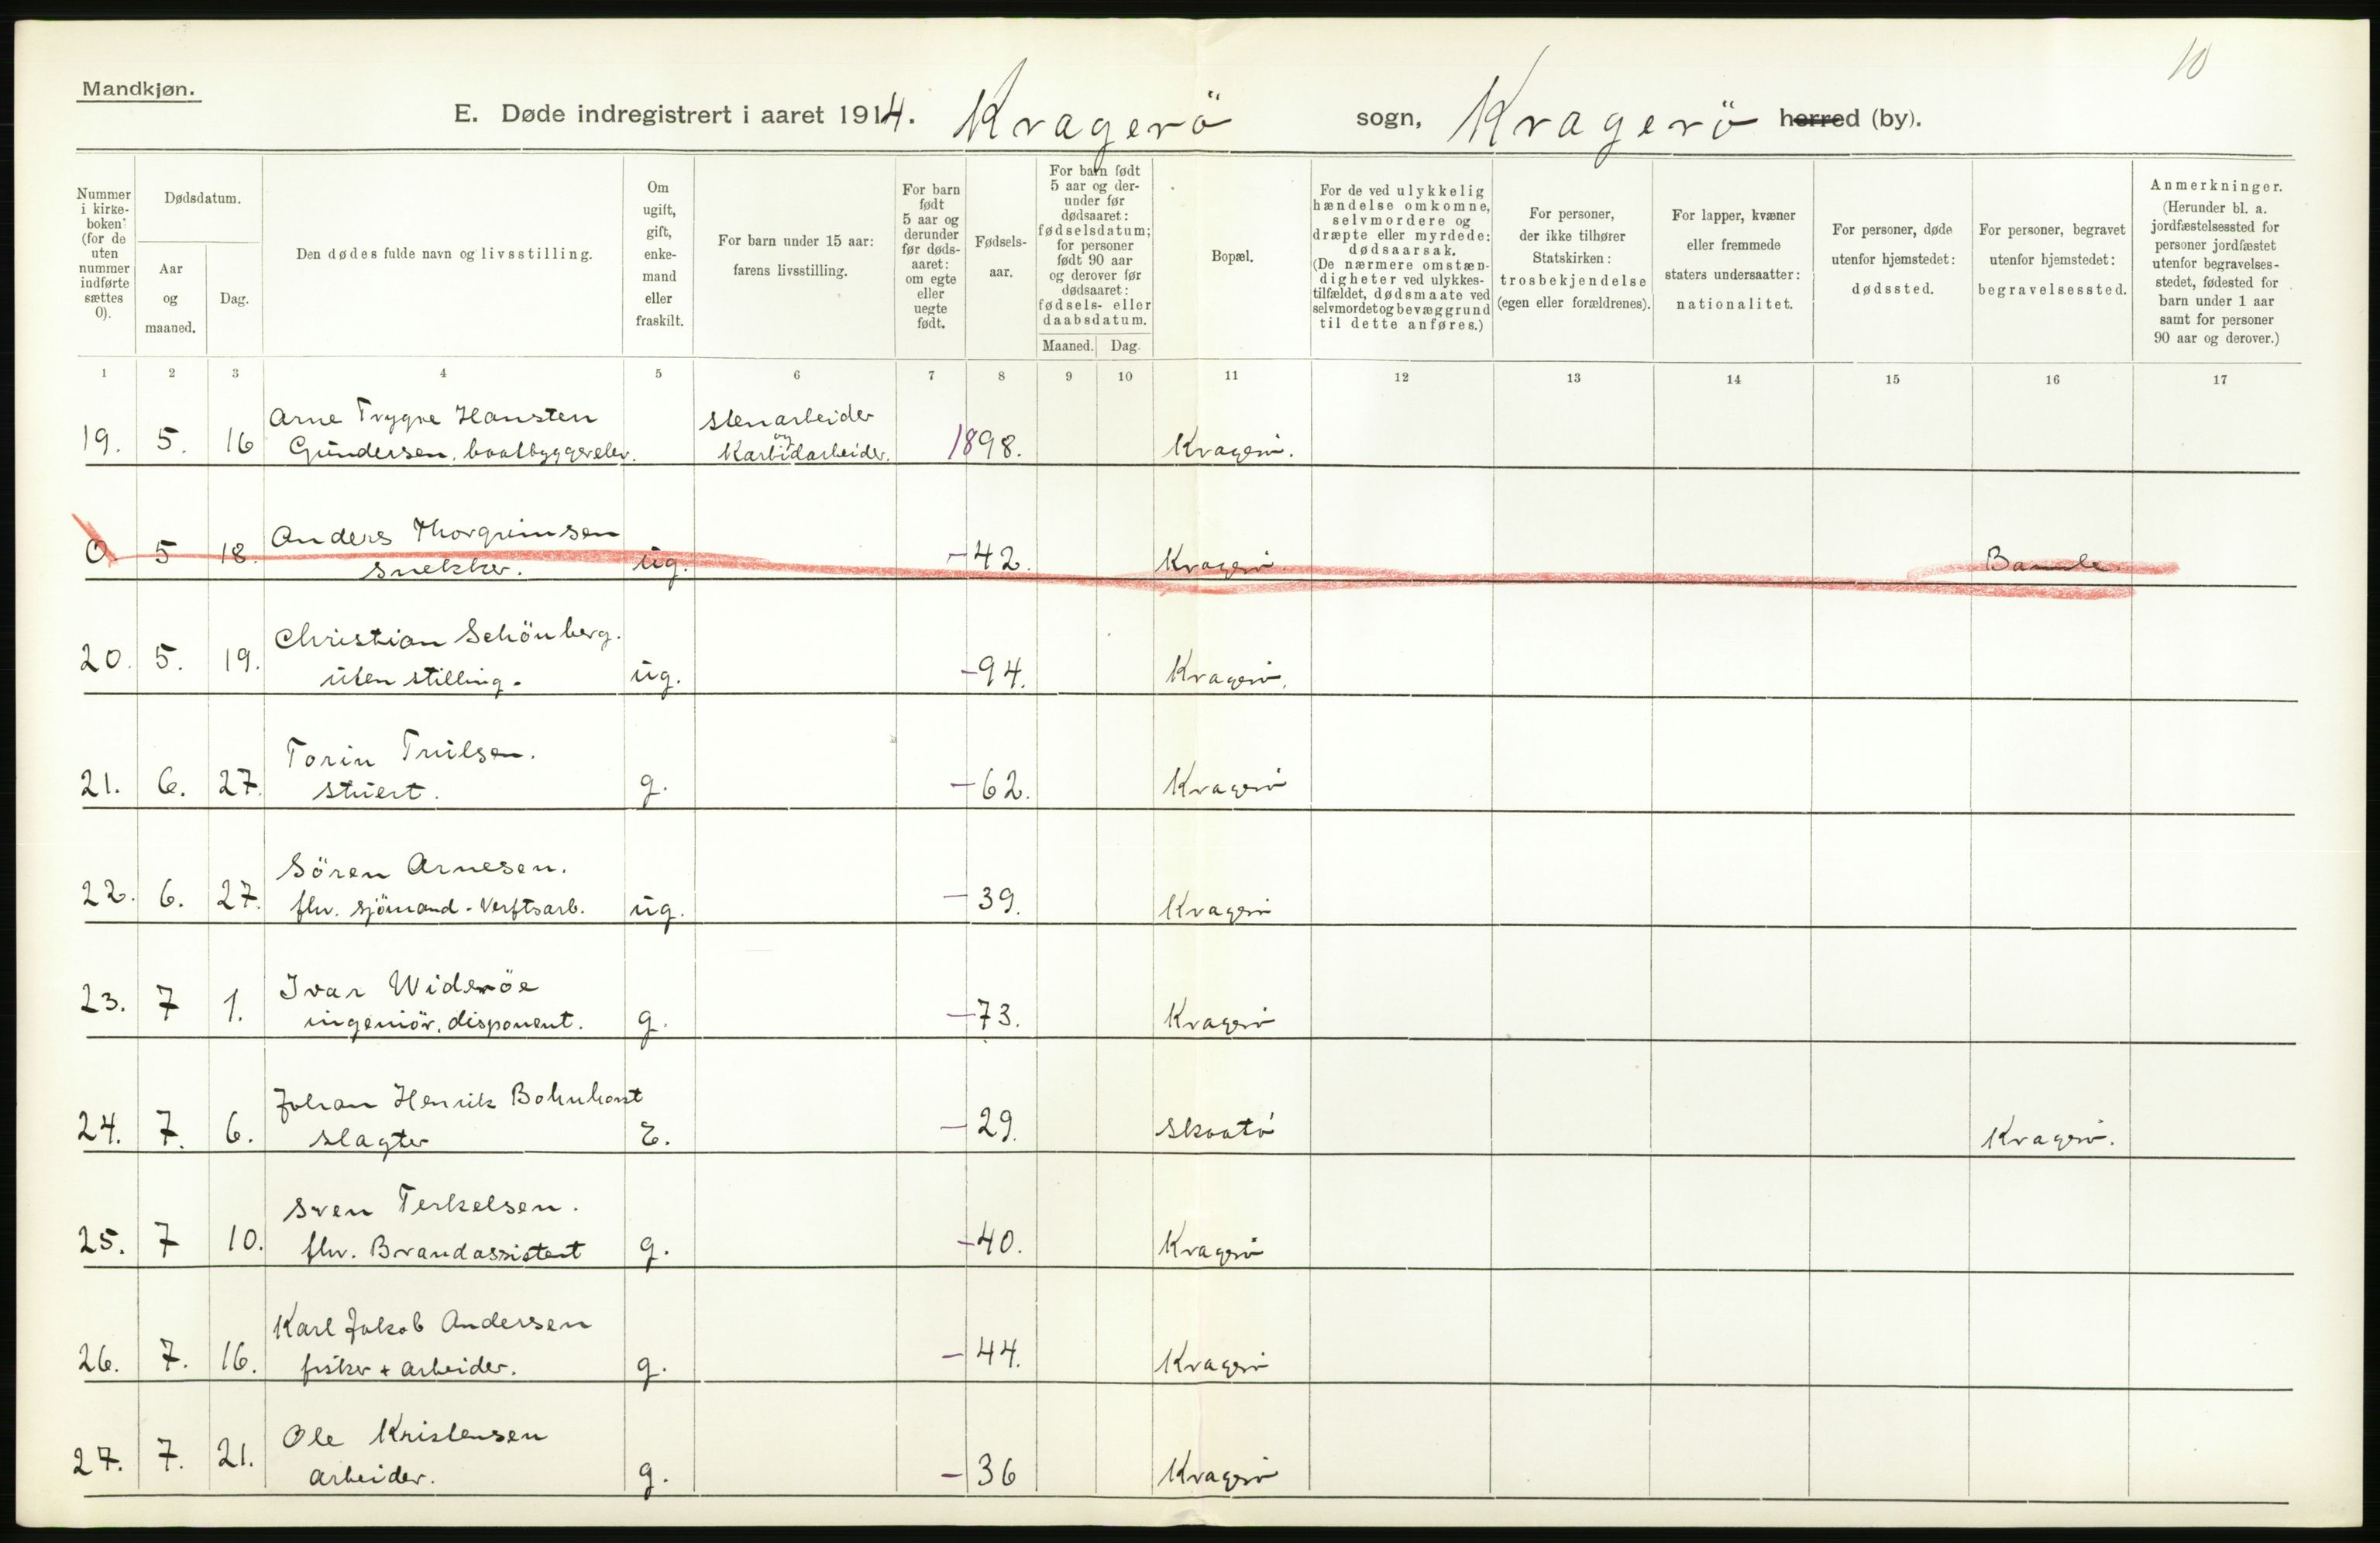 10
Mandkjøn.
E. Døde indregistrert i aaret 1914. Kragerö sogn, Kragerö herred (by).
Nummer i kirke-boken (for de uten nummer indførte sættes 0).
Dødsdatum.
Aar og maaned.
Dag.
Den dødes fulde navn og livsstilling.
Om ugift, gift, enke-mand eller fraskilt.
For barn under 15 aar: farens livsstilling.
For barn født 5 aar og derunder før døds-aaret: om egte eller uegte født.
Fødsels-aar.
For barn født 5 aar og der-under før dødsaaret: fødselsdatum; for personer født 90 aar og derover før dødsaaret: fødsels- eller daabsdatum.
Maaned. Dag.
Bopæl.
For de ved ulykkelig hændelse omkomne, selvmordere og dræpte eller myrdede: dødsaarsak. (De nærmere omstæn-digheter ved ulykkes-tilfældet, dødsmaate ved selvmordet og bevæggrund til dette anføres.)
For personer, der ikke tilhører Statskirken: trosbekjendelse (egen eller forældrenes).
For lapper, kvæner eller fremmede staters undersaatter: nationalitet.
For personer, døde utenfor hjemstedet: dødssted.
For personer, begravet utenfor hjemstedet: begravelsessted.
Anmerkninger. (Herunder bl. a. jordfæstelsessted for personer jordfæstet utenfor begravelses-stedet, fødested for barn under 1 aar samt for personer 90 aar og derover.)
1 2 3 4 5 6 7 8 9 10 11 12 13 14 15 16 17
Arne Trygve Hansten stenarbeider
19. 5. 16 Gundersen, baatbyggerelev. og Karbidarbeider. 1898. Kragerö.
Anders Thorgrimsen
0. 5 18. snekker. ug. -42. Kragerö. Bamle.
Christian Schönberg.
20. 5. 19. uten stilling. ug. -94. Kragerö.
Torin Truilsen.
21. 6. 27. stuert. g. -62. Kragerö
Sören Arnesen.
22. 6. 27. fhv. sjömand - Verftsarb. ug. -39. Kragerö
Ivar Wideröe
23. 7 1. ingeniör, disponent. g. -73. Kragerö
Johan Henrik Bohnhorst
24. 7. 6. slagter E. -29. Skaatö Kragerö.
Sven Terkelsen.
25. 7 10. fhv. Brandassistent g. -40. Kragerö
Karl Jakob Andersen
26. 7. 16. fisker + arbeider. g. -44. Kragerö
Ole Kristensen
27. 7. 21. arbeider. g. -36 Kragerö